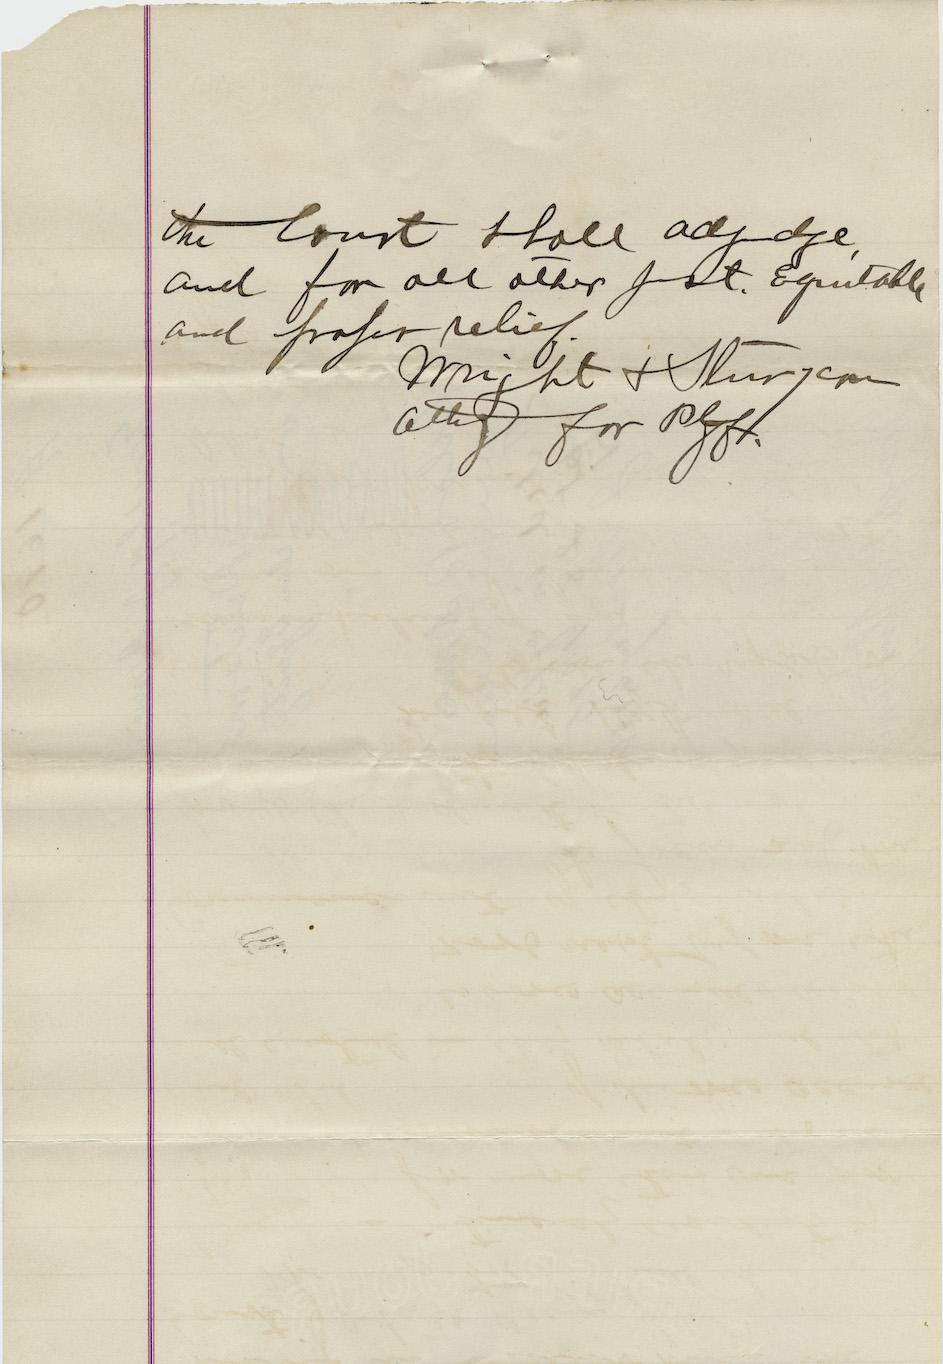 the Court shall adjudge,
and for all other just. Equitable
and proper relief.
Wright & Sturgeon
Attys for Plff.